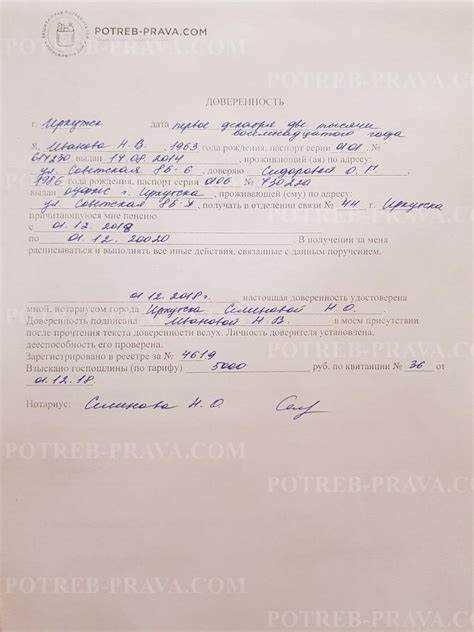 POTREB-PRAVA.COM
POTREB-PRAVA.COM
POTREB-PRAVA.COM
ДОВЕРЕННОСТЬ
г. Иркутск дата первое декабря две тысячи
восемнадцатого года
Я, Иванова Н. В., 1963 года рождения, паспорт серии 0101 №
выдан 17.08.2014, проживающий (ая) по адресу:
ул. Советская 86-6, доверяю Сидоровой О. П.
1986 года рождения, паспорт серии 0106 № 730220
выдан г. Иркутска, проживающей (ему) по адресу:
ул. Советская 86-, получать в отделении связи № 44 г. Иркутска
причитающуюся мне пенсию
с 01.12.2018
по 01.12.20020. В получении за меня
расписываться и выполнять все иные действия, связанные с данным поручением.
POTREB-PRAVA.COM
POTREB-PRAVA.COM
01.12.2018г. настоящая доверенность удостоверена
мной, нотариусом города Иркутска Семиновой Н. О.
Доверенность подписана Ивановой Н. В. в моем присутствии
после прочтения текста доверенности вслух. Личность доверителя установлена,
дееспособность его проверена.
POTREB-PRAVA.COM
Зарегистрировано в реестре за № 4619
Взыскано госпошлины (по тарифу) 5000 руб. по квитанции № 36 от
01.12.18.
Нотариус: Семинова Н. О.
POTREB-PRAVA.COM
POTREB-PRAVA.COM
POTREB-PRAVA.COM
POTREB-PRAVA.COM